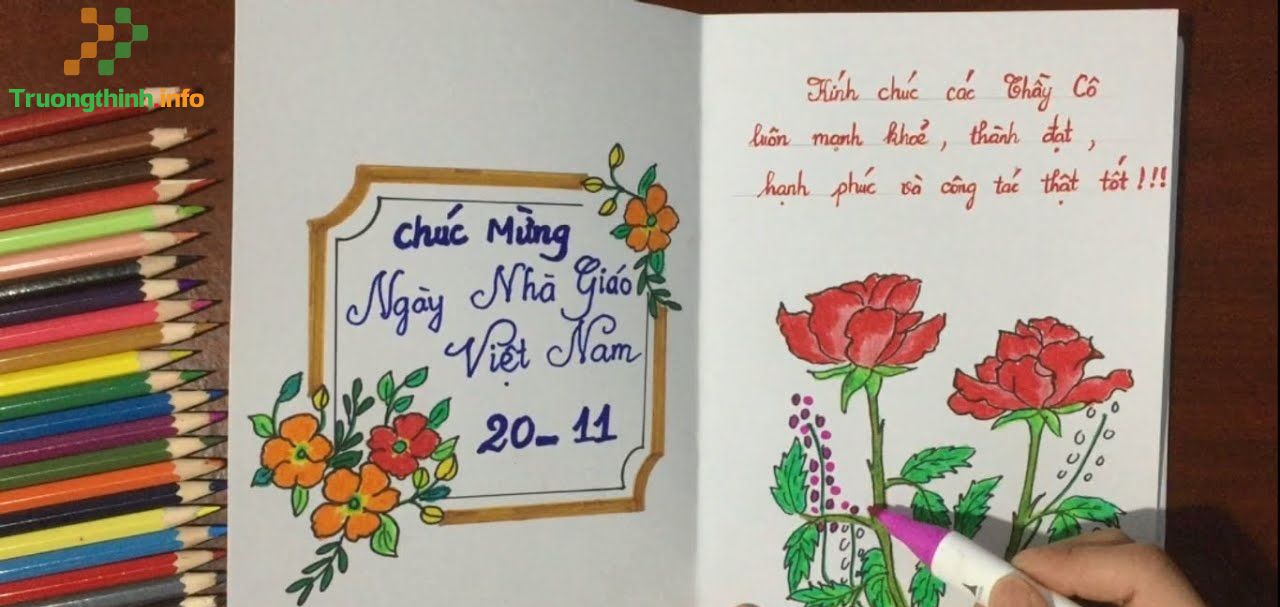 Truongthinh.info
Chúc Mừng
Ngày Nhà Giáo
Việt Nam
20-11
Kính chúc các Thầy Cô
luôn mạnh khoẻ, thành đạt,
hạnh phúc và công tác thật tốt!!!